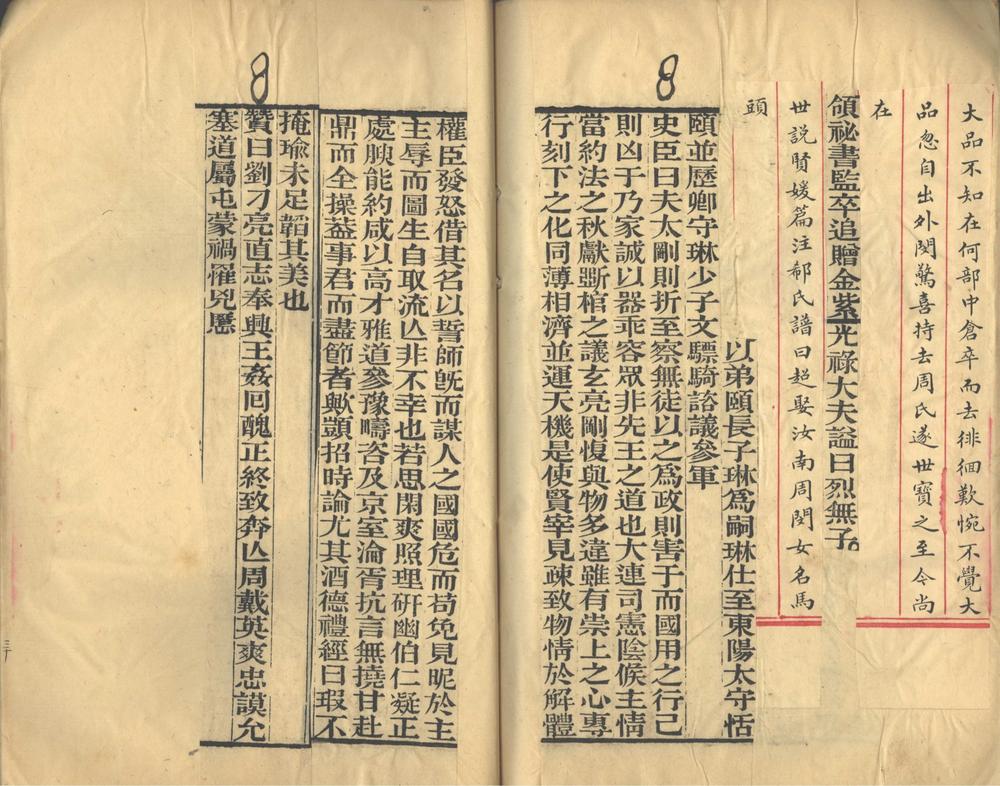 8
大品不知在何部中倉卒而去徘徊歎惋不覺大
品忽自出外閔驚喜持去周氏遂世寶之至今尚
在
領祕書監卒追贈金紫光祿大夫謚曰烈無子
世説賢媛篇注郗氏譜曰超娶汝南周閔女名馬
頭
以弟頤長子琳爲嗣琳仕至東陽太守恬
頤並歷卿守琳少子文驃騎諮議參軍
史臣曰夫太剛則折至察無徒以之爲政則害于而國用之行己
則凶于乃家誠以器乖容眾非先王之道也大連司憲陰候主情
當約法之秋獻斲棺之議玄亮剛愎與物多違雖有崇上之心專
行刻下之化同薄相濟並運天機是使賢宰見疎致物情於解體
8
權臣發怒借其名以誓師旣而謀人之國國危而苟免見昵於主
主辱而圖生自取流亾非不幸也若思閑爽照理研幽伯仁凝正
處腴能約咸以高才雅道參豫疇咨及京室淪胥抗言無撓甘赴
鼎而全操葢事君而盡節者歟顗招時論尤其酒德禮經曰瑕不
掩瑜未足韜其美也
贊曰劉刁亮直志奉興王姦回醜正終致奔亾周戴英爽忠謨允
塞道屬屯蒙禍罹兇慝